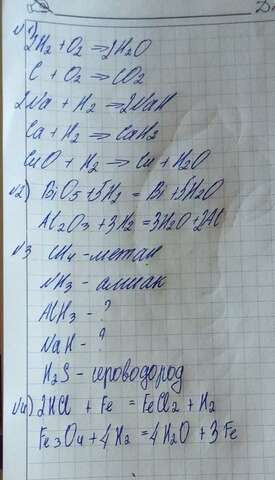 №1) 2H₂ + O₂ ⇒ 2H₂O
C + O₂ ⇒ CO₂
2Na + H₂ ⇒ 2NaH
Ca + H₂ ⇒ CaH₂
CuO + H₂ → Cu + H₂O
№2) BiO5 + 5H₂ = Bi + 5H₂O
Al₂O₃ + 3H₂ = 3H₂O + 2Al
№3 CH₄ - метан
NH₃ - амиак
AlH₃ - ?
NaH - ?
H₂S - сероводород
№4) 2HCl + Fe = FeCl₂ + H₂
Fe₃O₄ + 4H₂ = 4H₂O + 3Fe